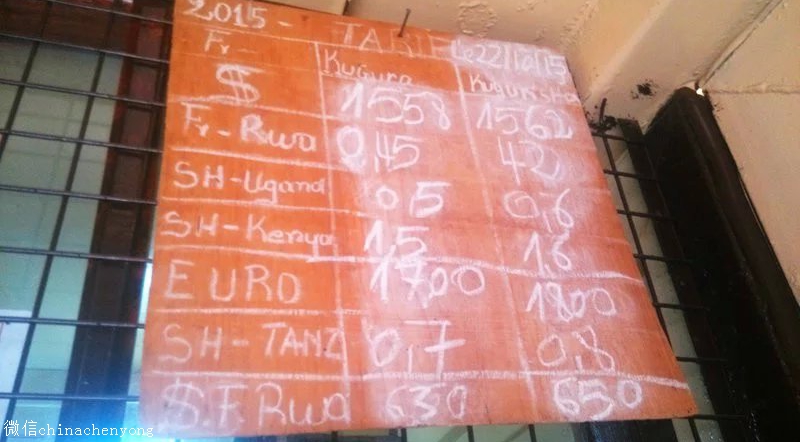 2015- TARIF Le 22/10/15
Fr- Kugura
$ 1558 1562
Fr-Rwa 0,45 42
SH-Ugand 0,5 0,6
SH-Kenya 1,5 1,6
EURO 1700 1800
SH-TANZ 0,7 0,8
$ F Rwa 630 650
微信chinachenyong